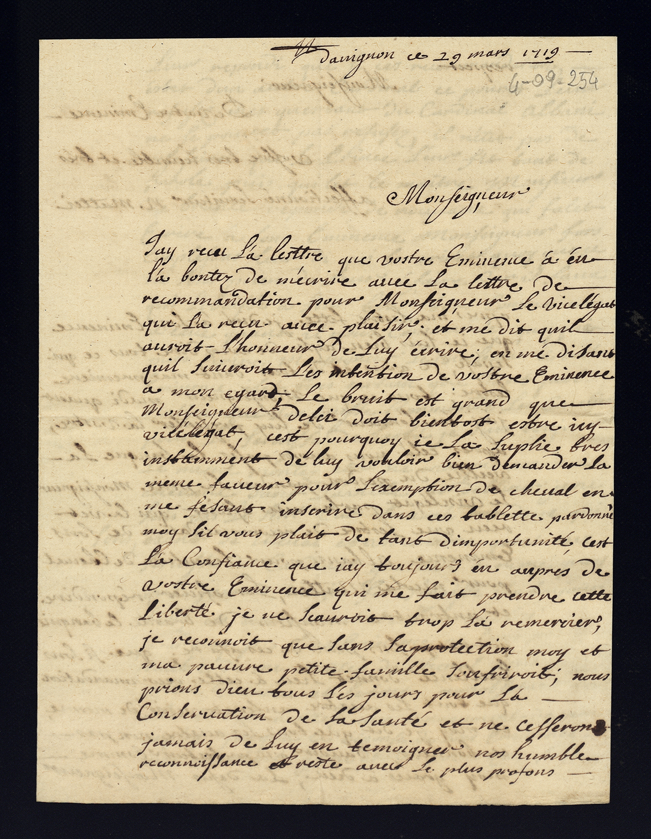 davignon ce 29 mars 1719
4-09-254
Monseigneur
Jay receu La lesttre que vostre Eminence á éu
la bontez de mécrire avec La lettre de
recommandation pour Monseigneur Le vicelégat
qui La receu avec plaisir et me dit quil
auroit Lhonneur de Luy écrire, en me disant
quil suivroit Les intention de vostre Eminence
a mon egard, Le bruit est grand que
Monseigneur delci doit bientost estre icy
vicélégat, cest pourquoy ie La suplie tres
instamment de luy vouloir bien demander La
meme faveur pour Lexemption de cheval en
me fésant inscrire dans ces tablette pardonné
moy sil vous plait de tant dimportunité, cest
La Confiance que iay toujours en aupres de
vostre Eminence qui me fait prendre cette
Liberté je ne scauroit trop La remercier,
je reconnoit que sans sa protection moy et
ma pauvre petite famille soufriroit, nous
prions dieu tous Les jours pour La
Conservation de sa santé et ne cesserons
jamais de Luy en temoigner nos humble
reconnoissance et reste avec Le plus profons